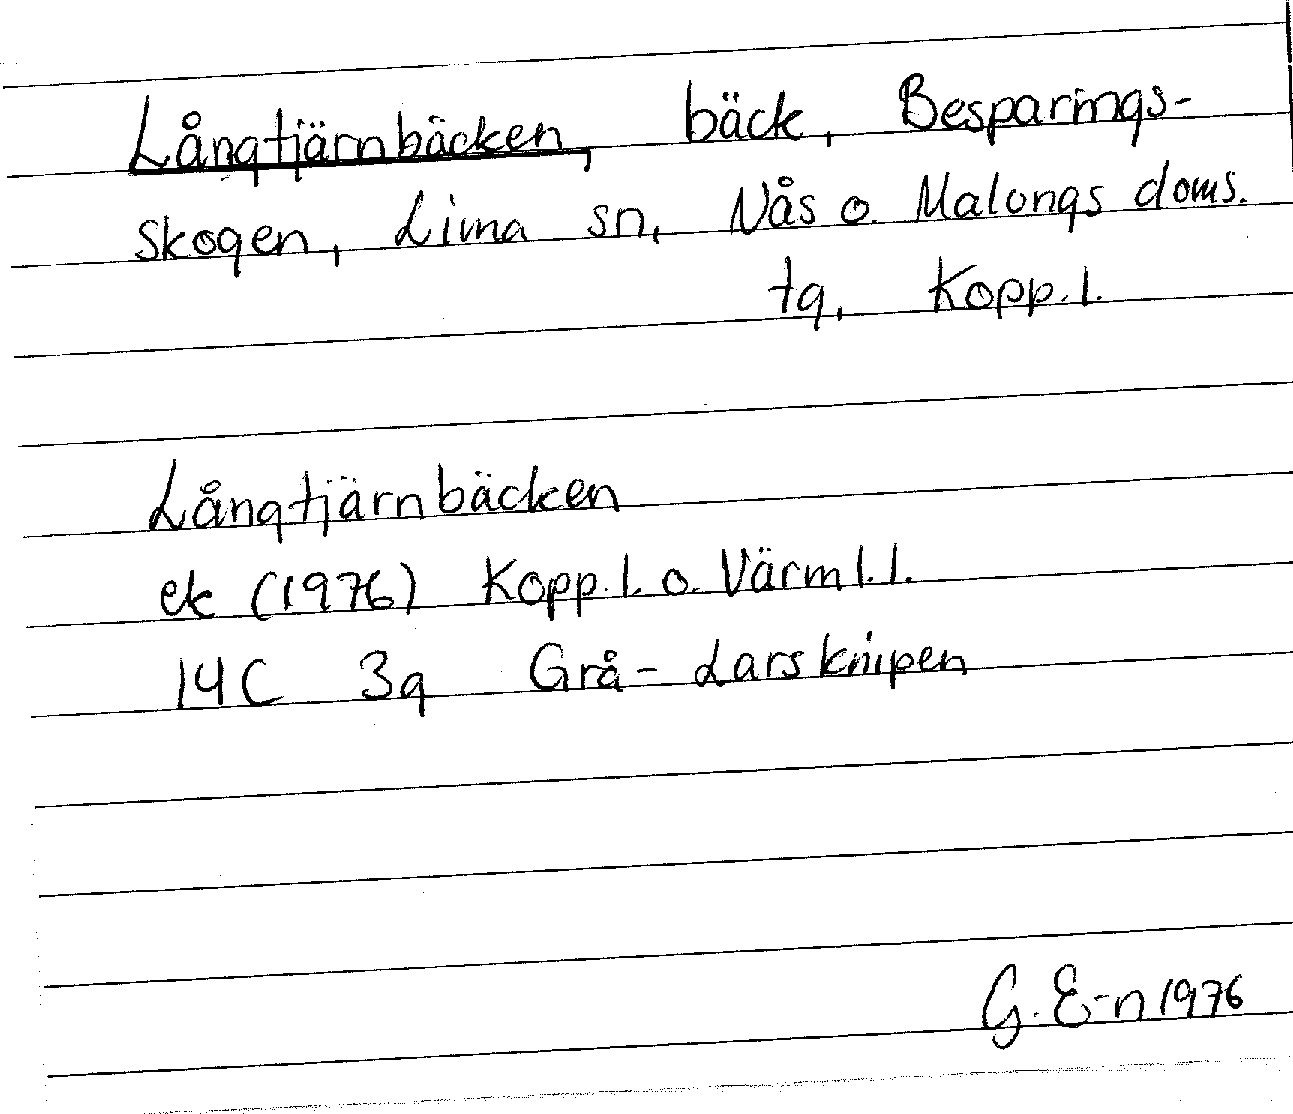 Långtjärnbäcken, bäck, Besparings-
skogen, Lima sn, Nås o. Malungs doms.
tg, Kopp. l.
Långtjärnbäcken
ek (1976) Kopp. l. o. Värml. l.
14C 3g Grå-Larsknipen
G. E-n 1976